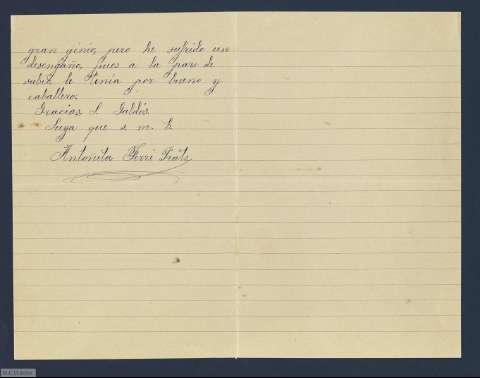 gran genio, pero he sufrido un
desengaño, pues a la par de
sabio le tenía por bueno y
caballero.
Gracias S. Galdós
Suya que s. m. b.
Antonita Ferri Prats